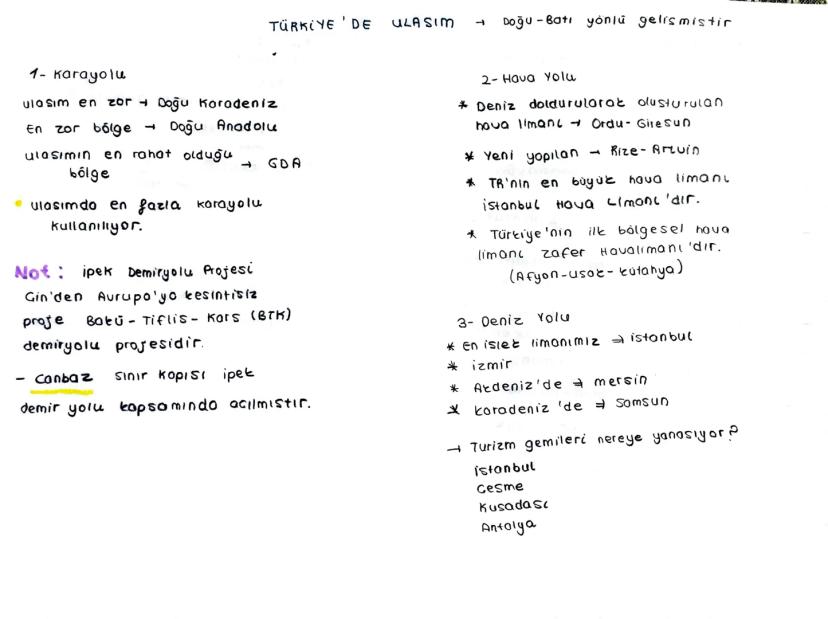 TÜRKİYE'DE ULASIM → Doğu-Batı yönlü gelismistir
1- Karayolu
ulasım en zor → Doğu Karadeniz
En zor bölge → Doğu Anadolu
ulasımın en rahat olduğu bölge → GDA
ulasımda en fazla karayolu
kullanılıyor.
Not: ipek Demiryolu Projesi
Cin'den Avrupa'ya kesintisiz
proje Bakü-Tiflis-Kars (BTK)
demiryolu projesidir.
- Canbaz sınır kapısı ipek
demir yolu kapsamında acılmıstır.
2- Hava Yolu
* Deniz doldurularak olusturulan
hava limanı → Ordu-Giresun
* Yeni yapılan → Rize-Artvin
* TR'nin en büyük hava limanı
istanbul Hava Limanı'dır.
* Türkiye'nin ilk bölgesel hava
limanı zafer Havalimanı'dır.
(Afyon-usak-kütahya)
3- Deniz Yolu
* En islek limanımız ⇒ istanbul
* izmir
* Akdeniz'de ⇒ mersin
* karadeniz'de ⇒ Samsun
→ Turizm gemileri nereye yanasıyor?
istanbul
Cesme
Kusadası
Antalya